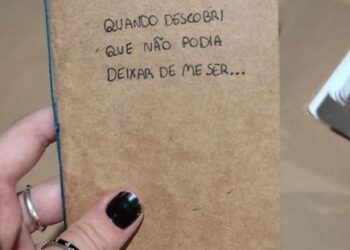 QUANDO DESCOBRI
QUE NÃO PODIA
DEIXAR DE ME SER...